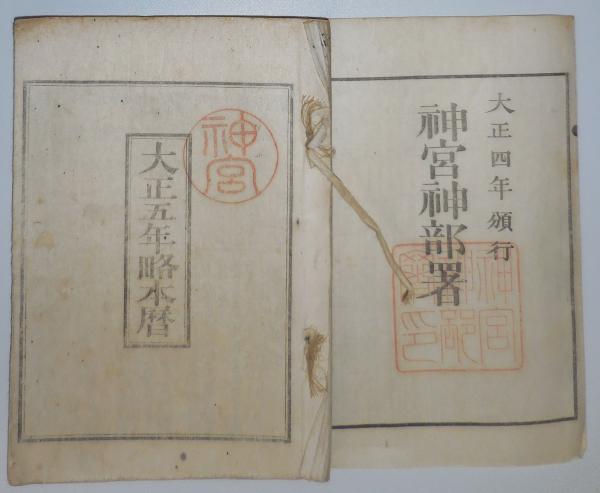 大正四年頒行
神宮神部署
神宮神部署之印
神宮
大正五年略本暦